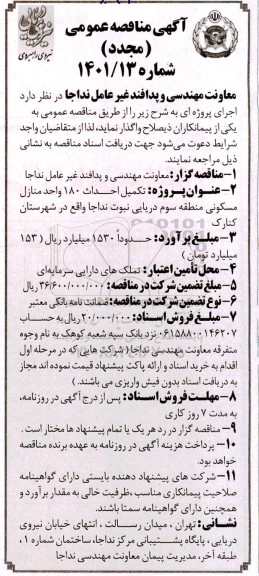 آگهی مناقصه عمومی
(مجدد)
شماره ۱۴۰۱/۱۳
نیروی دریایی
نیروی راهبردی
معاونت مهندسی و پدافند غیر عامل نداجا در نظر دارد
اجرای پروژه ای به شرح زیر را از طریق مناقصه عمومی به
یکی از پیمانکاران ذیصلاح واگذار نماید، لذا از متقاضیان واجد
شرایط دعوت می‌شود جهت دریافت اسناد مناقصه به نشانی
ذیل مراجعه نمایند.
۱- مناقصه گزار: معاونت مهندسی و پدافند غیر عامل نداجا
۲- عنوان پروژه: تکمیل احداث ۱۸۰ واحد منازل
مسکونی منطقه سوم دریایی نبوت نداجا واقع در شهرستان
کنارک
۳- مبلغ برآورد: حدوداً ۱۵۳۰ میلیارد ریال (۱۵۳
میلیارد تومان)
۴- محل تأمین اعتبار: تملک های دارایی سرمایه‌ای
۵- مبلغ تضمین شرکت در مناقصه: ۳۶/۶۰۰/۰۰۰/۰۰۰
۶- نوع تضمین شرکت در مناقصه: ضمانت نامه بانکی معتبر
۷- مبلغ فروش اسناد: ۲۰/۰۰۰/۰۰۰ ریال به حساب
۰۶۱۵۸۸۰۰۱۴۶۲۰۷ نزد بانک سپه شعبه کوهک به نام وجوه
متفرقه معاونت مهندسی نداجا (شرکت هایی که در مرحله اول
اقدام به خرید اسناد و ارائه پاکت پیشنهاد قیمت نموده اند مجاز
به دریافت اسناد بدون فیش واریزی می باشند.)
۸- مهلت فروش اسناد: پس از درج آگهی در روزنامه،
به مدت ۷ روز کاری
۹- مناقصه گزار در رد هر یک یا تمام پیشنهاد ها مختار است.
۱۰- پرداخت هزینه آگهی در روزنامه به عهده برنده مناقصه
خواهد بود.
۱۱- شرکت های پیشنهاد دهنده بایستی دارای گواهینامه
صلاحیت پیمانکاری مناسب، ظرفیت خالی به مقدار برآورد و
همچنین دارای گواهینامه سمتا باشند.
نشانی: تهران، میدان رسالت، انتهای خیابان نیروی
دریایی، پایگاه پشتیبانی مرکز نداجا، ساختمان شماره ۱،
طبقه آخر، مدیریت پیمان معاونت مهندسی نداجا